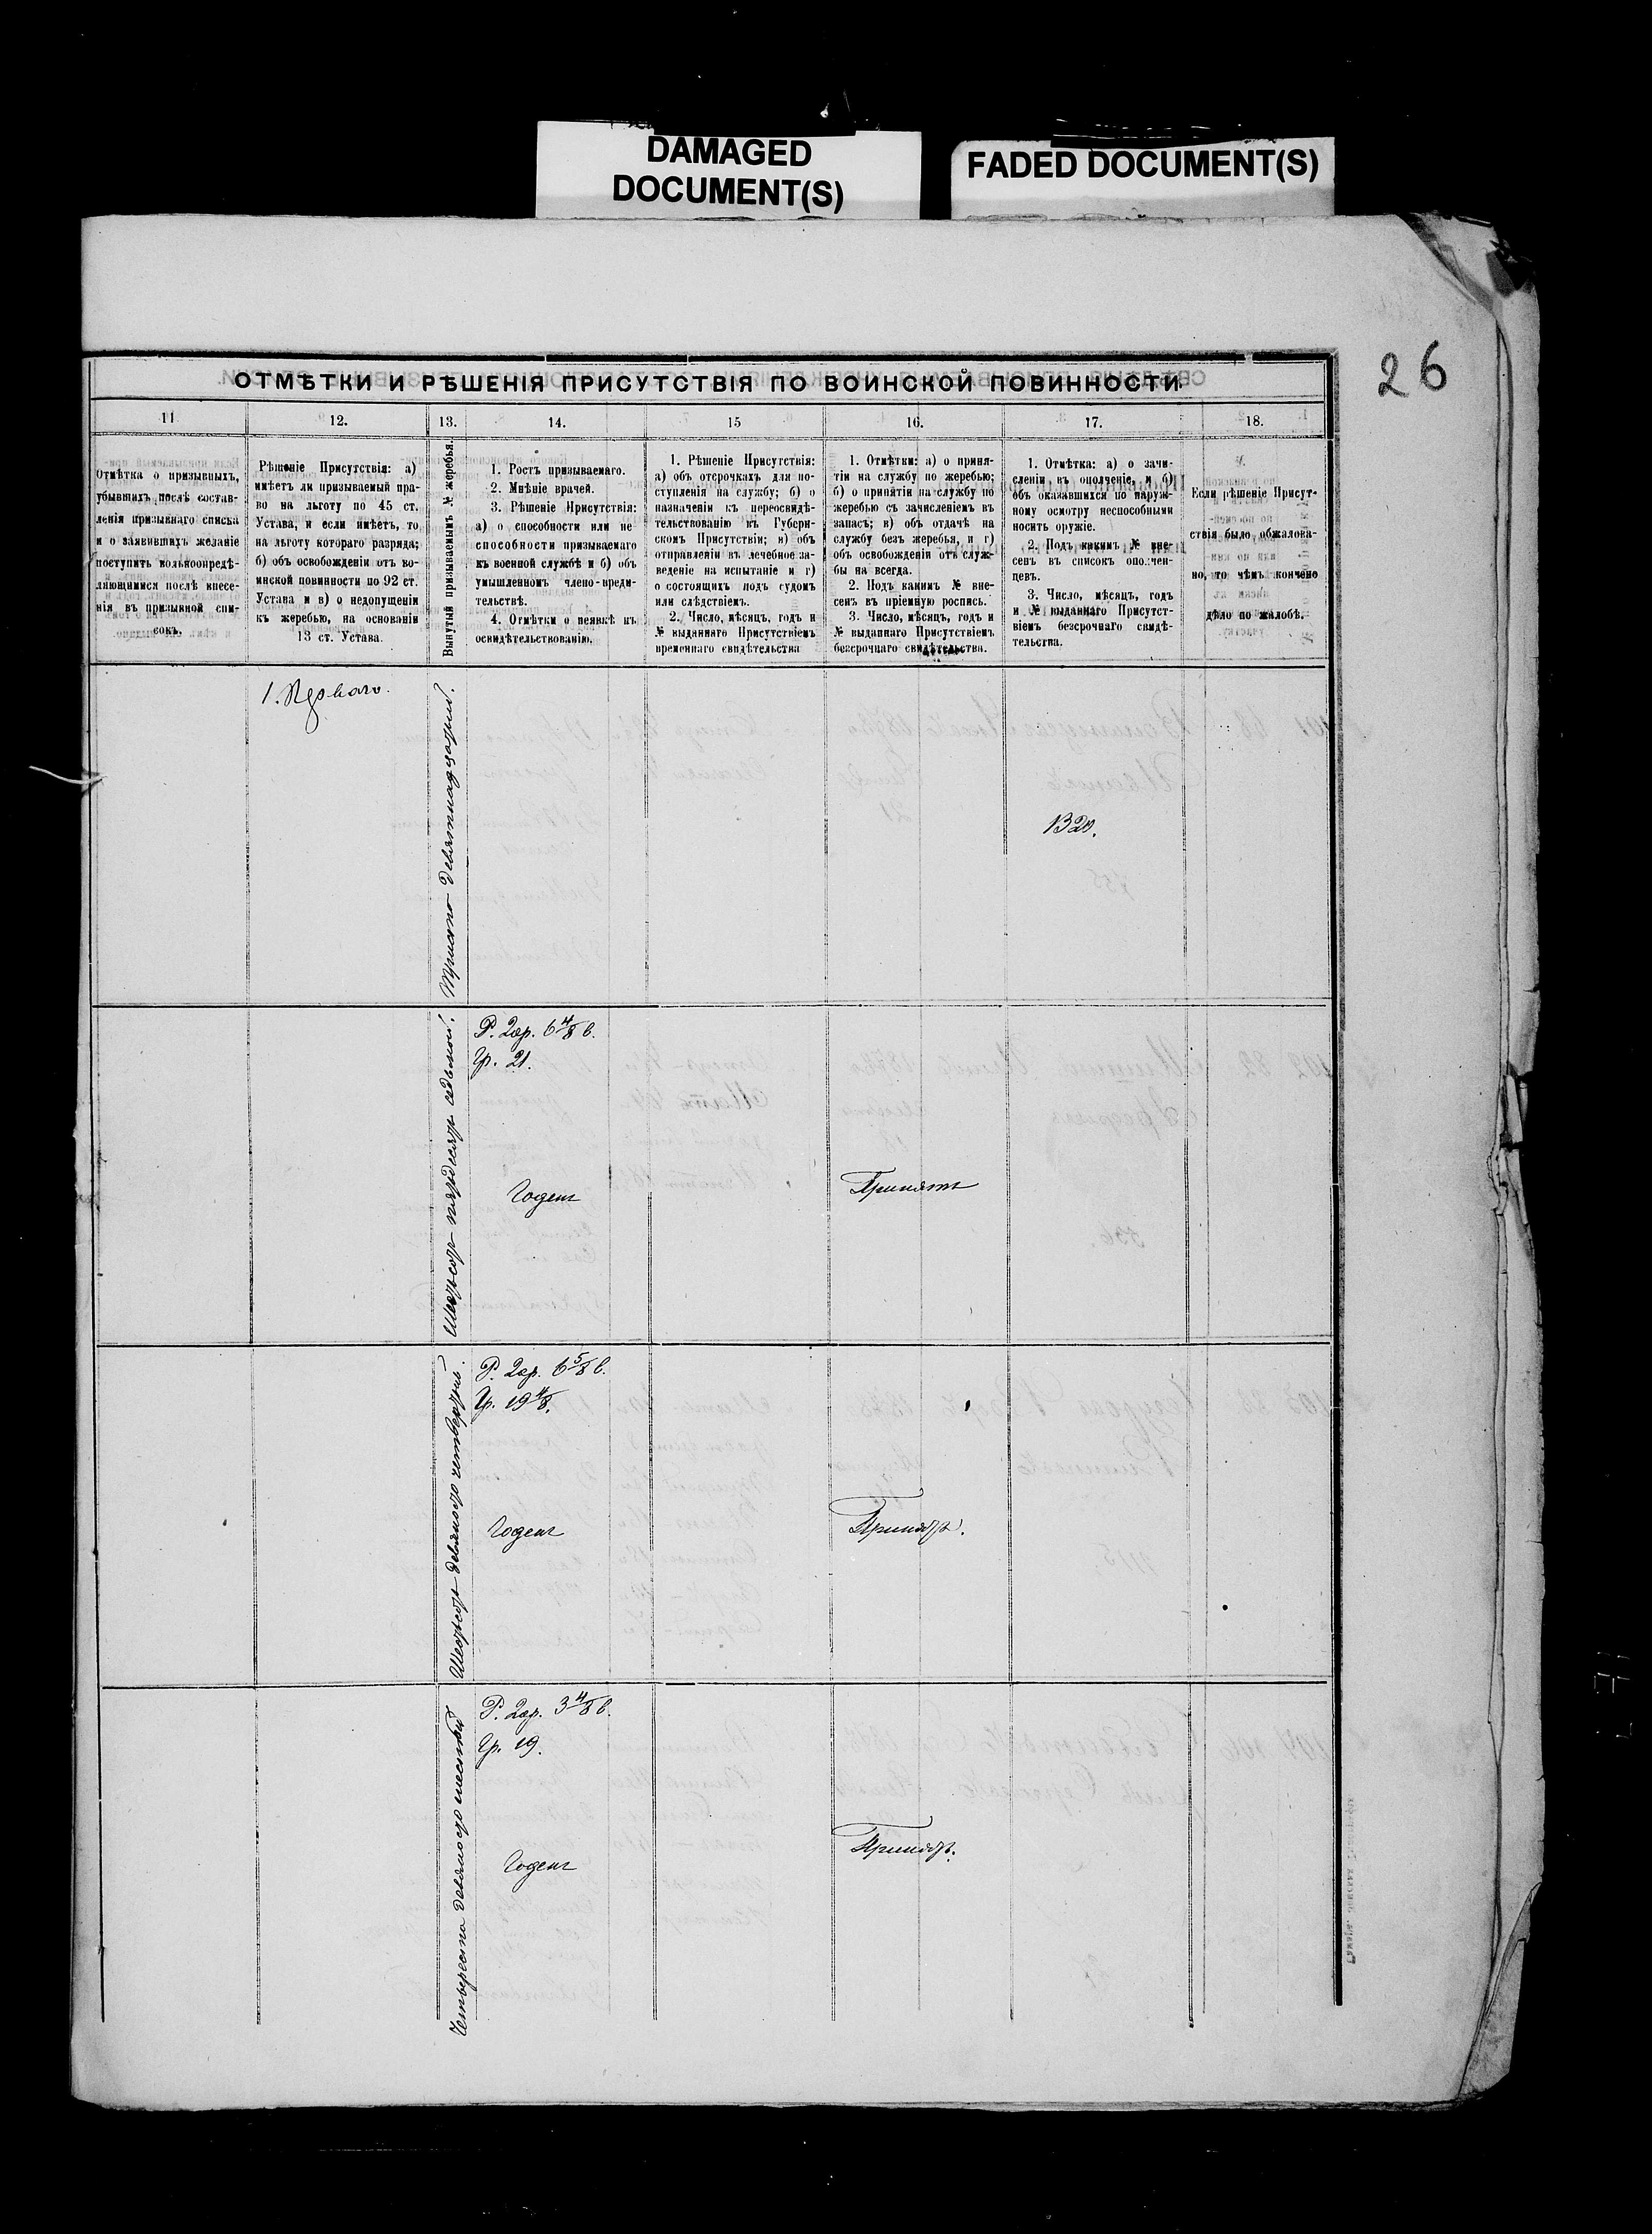 DAMAGED
DOCUMENT(S)
FADED DOCUMENT(S)
26
ОТМѢТКИ И РѢШЕНІЯ ПРИСУТСТВІЯ ПО ВОИНСКОЙ ПОВИННОСТИ
11
12.
13.
14.
15
16.
17.
18.
Отмѣтка о призывныхъ,
убывшихъ послѣ состав-
ленія призывнаго списка
и о заявившихъ желаніе
поступить вольноопредѣ-
ляющимися послѣ внесе-
нія въ призывной спи-
сокъ.
Рѣшеніе Присутствія: а)
имѣетъ ли призываемый пра-
во на льготу по 45 ст.
Устава, и если имѣетъ, то
на льготу котораго разряда;
б) объ освобожденіи отъ во-
инской повинности по 92 ст.
Устава и в) о недопущеніи
къ жеребью, на основаніи
13 ст. Устава.
Вынутый призываемымъ № жеребья.
1. Ростъ призываемаго.
2. Мнѣніе врачей.
3. Рѣшеніе Присутствія:
а) о способности или не-
способности призываемаго
къ военной службѣ и б) объ
умышленномъ члено-вреди-
тельствѣ.
4. Отмѣтки о неявкѣ къ
освидѣтельствованію.
1. Рѣшеніе Присутствія:
а) объ отсрочкахъ для по-
ступленія на службу; б) о
назначеніи къ переосвидѣ-
тельствованію къ Губерн-
скомъ Присутствіи; в) объ
отправленіи въ лечебное за-
веденіе на испытаніе и г)
о состоящихъ подъ судомъ
или слѣдствіемъ.
2. Число, мѣсяцъ, годъ и
№ выданнаго Присутствіемъ
временнаго свидѣтельства
1. Отмѣтки: а) о приня-
тіи на службу по жеребью;
б) о принятіи на службу по
жеребью съ зачисленіемъ въ
запасъ; в) объ отдачѣ на
службу безъ жеребья, и г)
объ освобожденіи отъ служ-
бы на всегда.
2. Подъ какимъ № вне-
сенъ въ пріемную роспись.
3. Число, мѣсяцъ, годъ и
№ выданнаго Присутствіемъ
безсрочнаго свидѣтельства.
1. Отмѣтка: а) о зачи-
сленіи въ ополченіе, и б)
объ оказавшихся по наруж-
ному осмотру неспособными
носить оружіе.
2. Подъ какимъ № вне-
сенъ въ списокъ ополчен-
цевъ.
3. Число, мѣсяцъ, годъ
и № выданнаго Присутст-
віемъ безсрочнаго свидѣ-
тельства.
Если рѣшеніе Присут-
ствія было обжалова-
но, то чѣмъ кончено
дѣло по жалобѣ.
1. Перваго.
Триста девятнадцатый.
В 20.
Шестьсот пятьдесят седьмой.
Р. 2 ар. 6 4/8 в.
Гр. 21.
Годенъ
Принятъ
Шестьсот девяносто четвертый.
Р. 2 ар. 6 5/8 в.
Гр. 19 4/8.
Годенъ
Принятъ.
Четыреста девяносто шестой
Р. 2 ар. 3 4/8 в.
Гр. 19.
Годенъ
Принятъ.